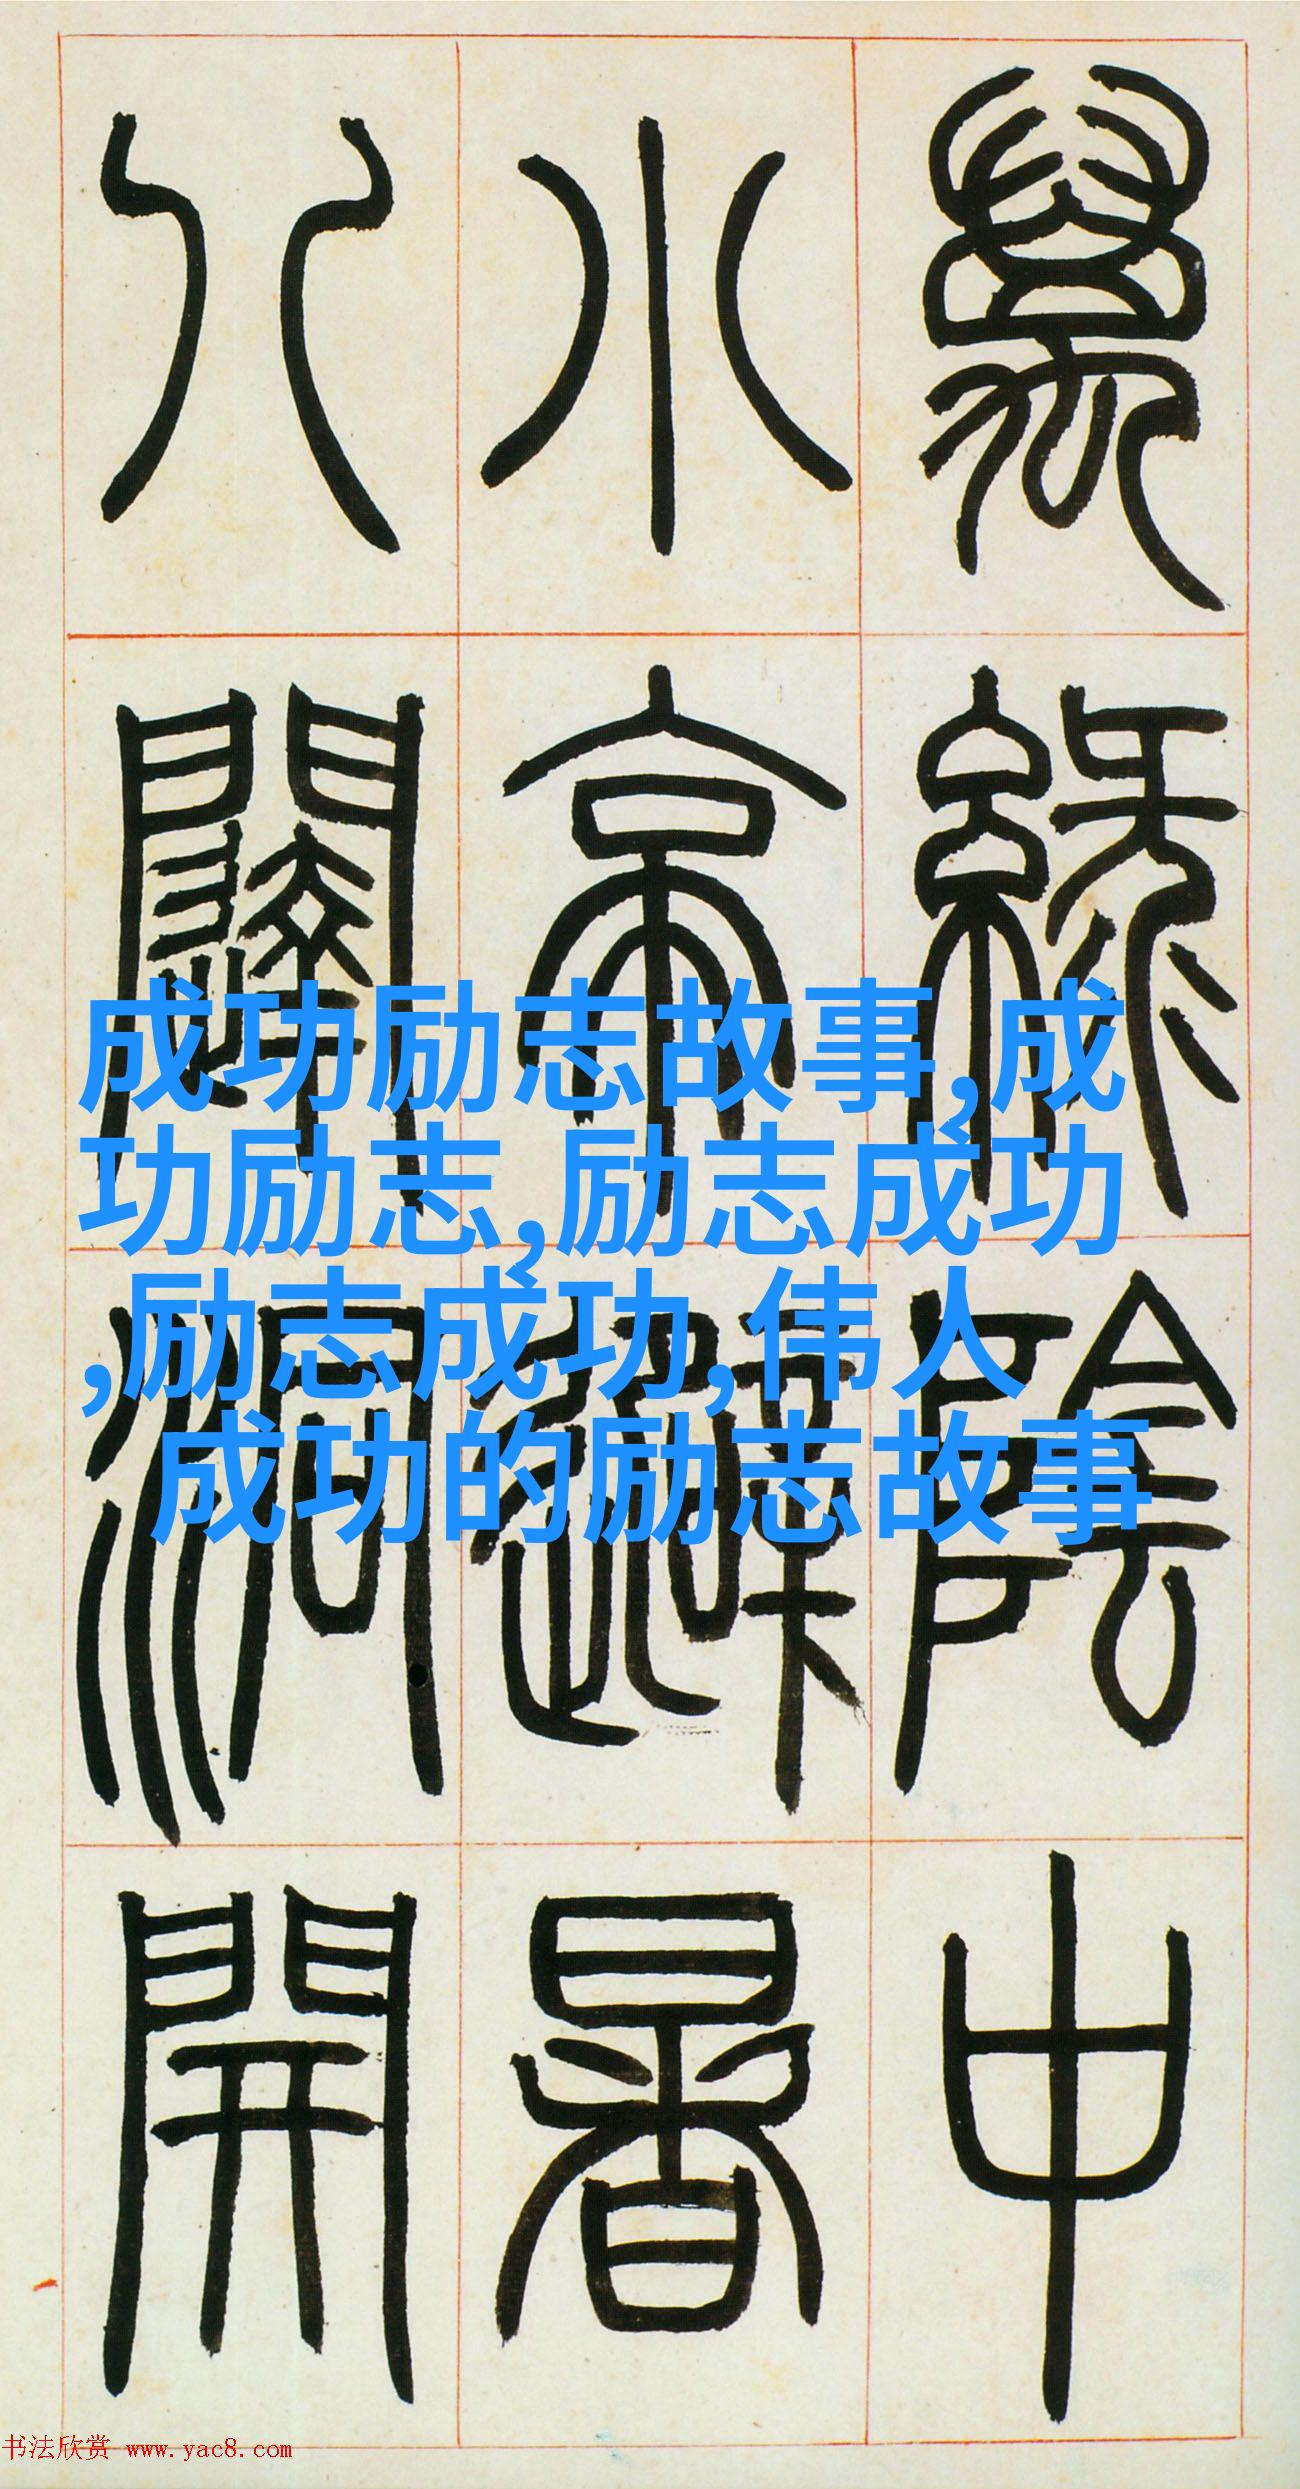 萬綠陰中
小亭避暑
八闥洞開
成功励志故事,成
功励志,励志成功
,励志成功,伟人
成功的励志故事
书法欣赏 www.yac8.com